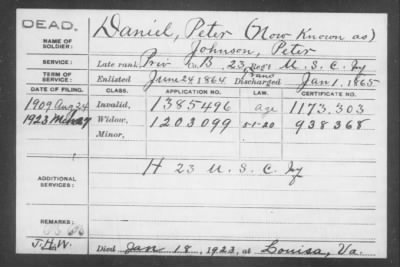 DEAD.
Daniel, Peter (Now Known as)
NAME OF SOLDIER:
Johnson, Peter
SERVICE:
Late rank, Priv Co. B, 23 Reg't U. S. C. Inf
TERM OF SERVICE:
Enlisted June 24 1864 Discharged Jan 1, 1865
DATE OF FILING. CLASS. APPLICATION NO. LAW. CERTIFICATE NO.
1909 Aug 24 Invalid, 1385496 age 1173.303
1923 Widow, 1203099 5-1-20 938368
Minor,
ADDITIONAL SERVICES:
H 23 U. S. C. Inf
REMARKS:
J.H.W.
Died Jan 18, 1923, at Louisa, Va.